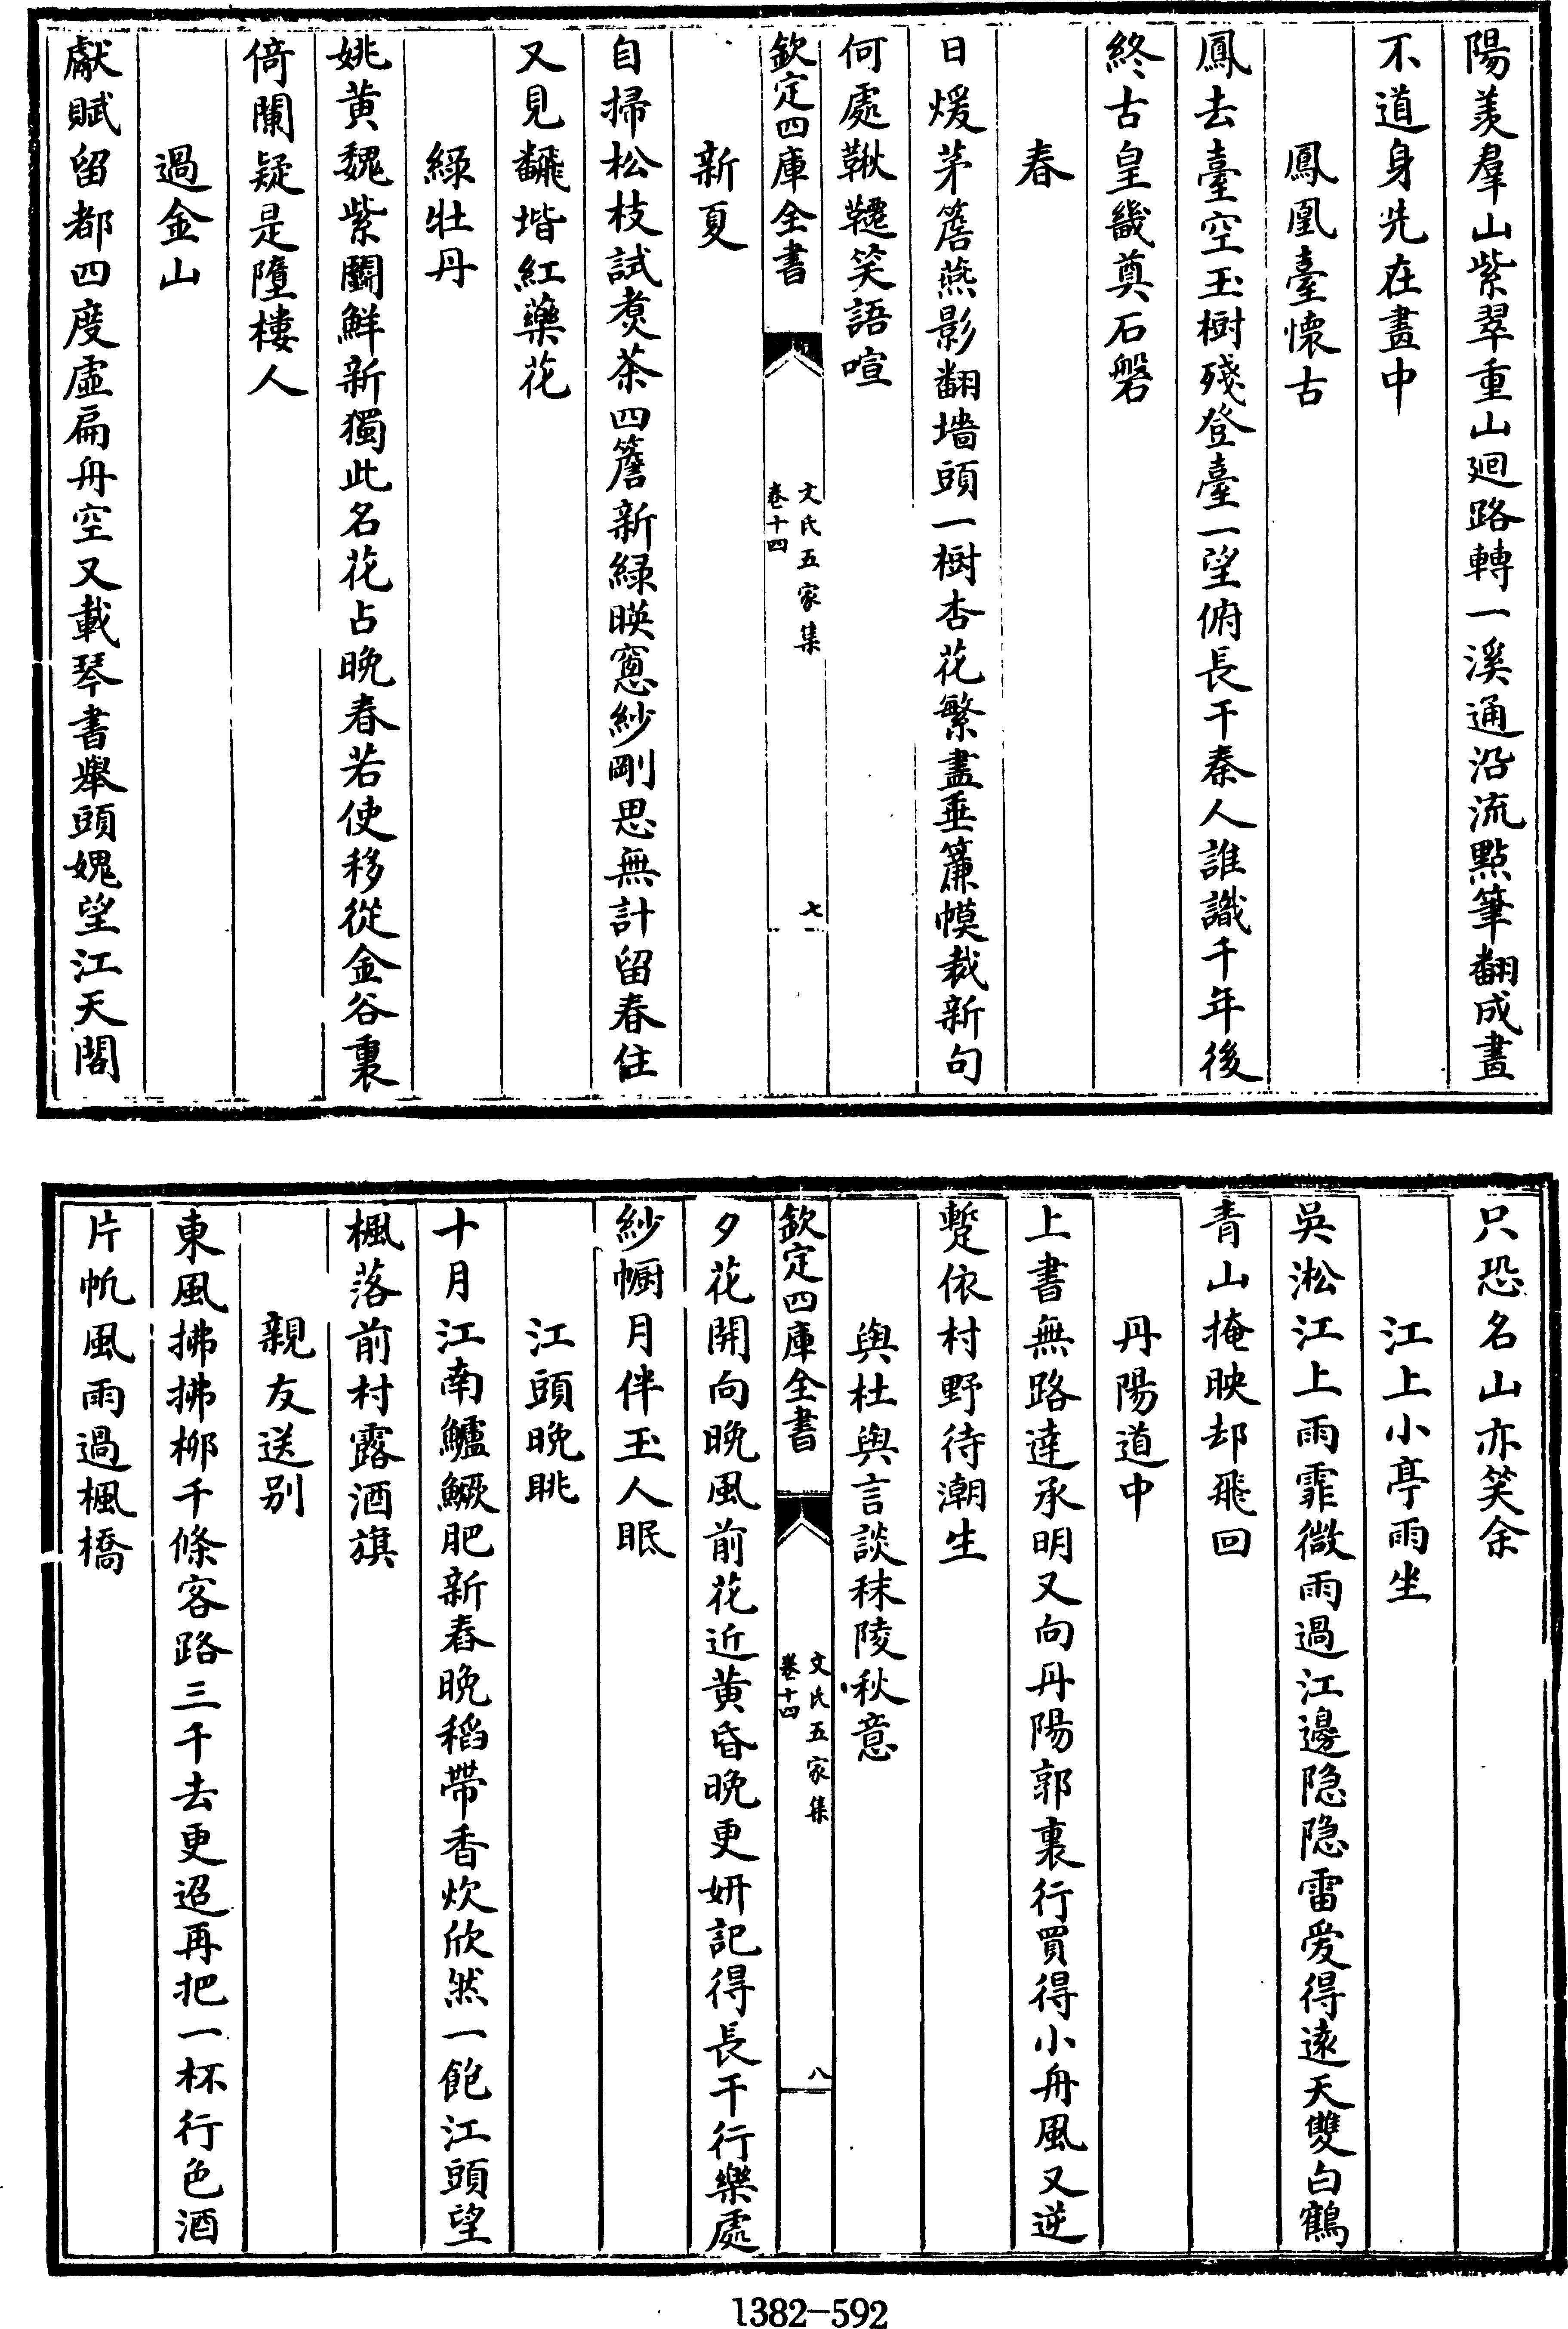 陽羡羣山紫翠重山廻路轉一溪通沿流點筆翻成畫
不道身先在畫中
鳳凰臺懷古
鳳去臺空玉樹殘登臺一望俯長干秦人誰識千年後
終古皇畿奠石磐
春
日煖茅簷燕影翻墻頭一樹杏花繁盡垂簾幙裁新句
何處鞦韆笑語喧
欽定四庫全書
文氏五家集
卷十四
七
新夏
自掃松枝試煑茶四簷新緑暎窻紗剛思無計留春住
又見飜堦紅藥花
緑牡丹
姚黄魏紫鬭鮮新獨此名花占晚春若使移從金谷裏
倚闌疑是墮樓人
過金山
獻賦留都四度虛扁舟空又載琴書舉頭媿望江天閣
只恐名山亦笑余
江上小亭雨坐
吳淞江上雨霏微雨過江邊隐隐雷爱得逺天雙白鶴
青山掩映却飛回
丹陽道中
上書無路達承明又向丹陽郭裏行買得小舟風又逆
蹔依村野待潮生
與杜與言談秣陵秋意
欽定四庫全書
文氏五家集
卷十四
八
夕花開向晚風前花近黄昏晚更妍記得長干行樂處
紗幮月伴玉人眠
江頭晚眺
十月江南鱸鱖肥新舂晚稻帶香炊欣然一飽江頭望
楓落前村露酒旗
親友送别
東風拂拂栁千條客路三千去更迢再把一杯行色酒
片帆風雨過楓橋
1382-592